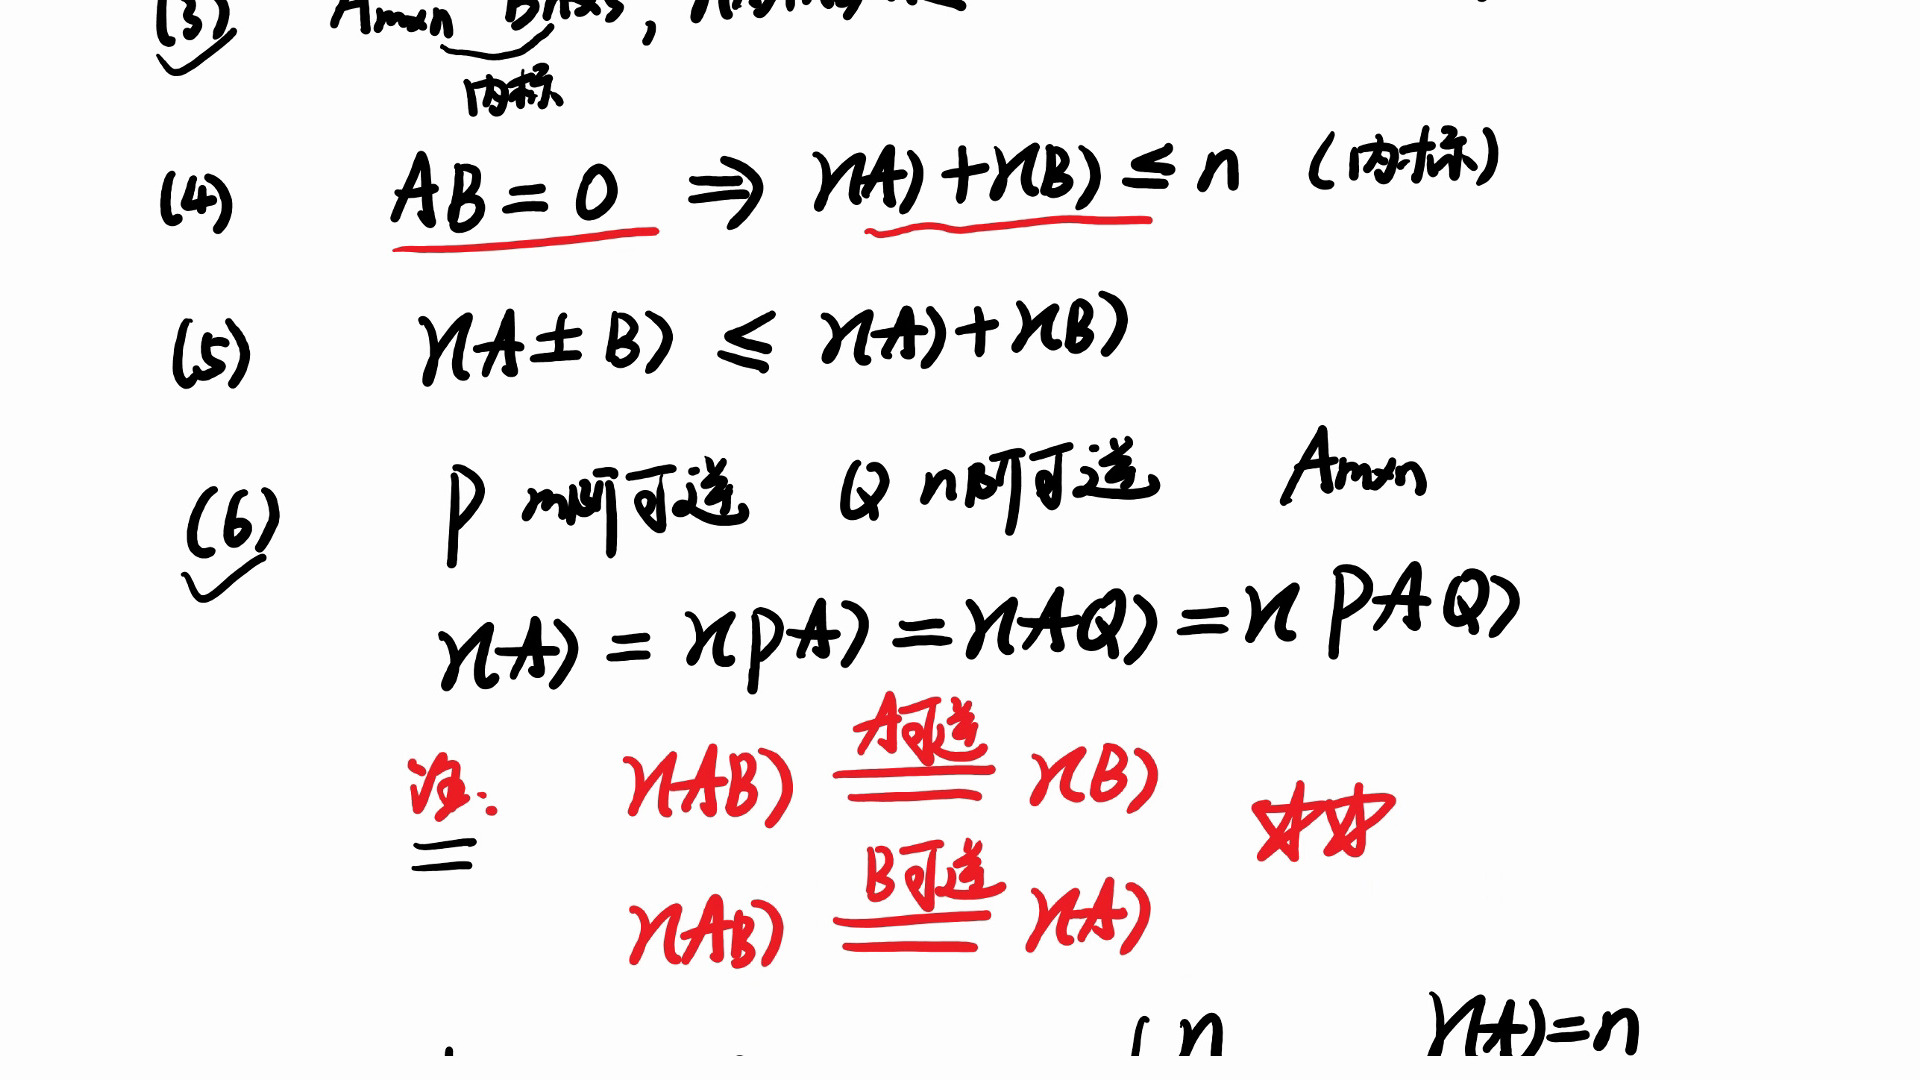 (3) Am×n Bn×s,
内标
(4) AB = 0 ⇒ r(A) + r(B) ≤ n (内标)
(5) r(A ± B) ≤ r(A) + r(B)
(6) P m阶可逆 Q n阶可逆 Am×n
r(A) = r(PA) = r(AQ) = r(PAQ)
注: r(AB) A可逆 = r(B) ☆☆
r(AB) B可逆 = r(A)
{ n r(A)=n